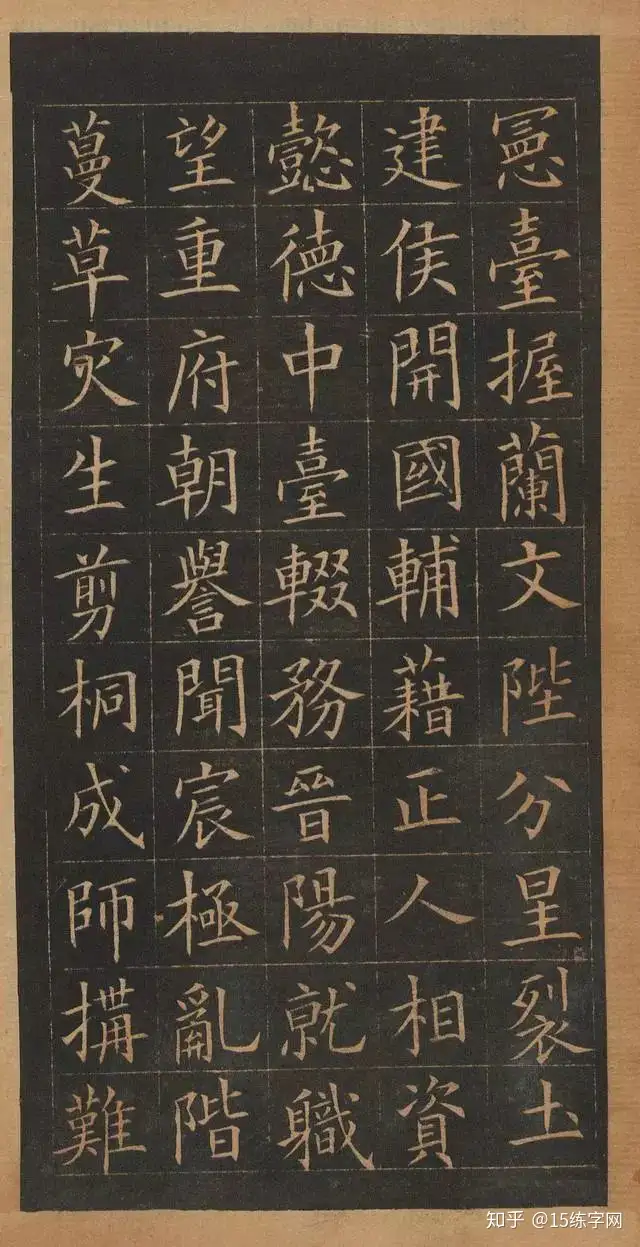 冩臺握蘭文陛分星裂土
建侯開國輔藉正人相資
懿德中臺輟務晉陽就職
望重府朝譽聞宸極亂階
蔓草灾生剪桐成師搆難
知乎 @15练字网